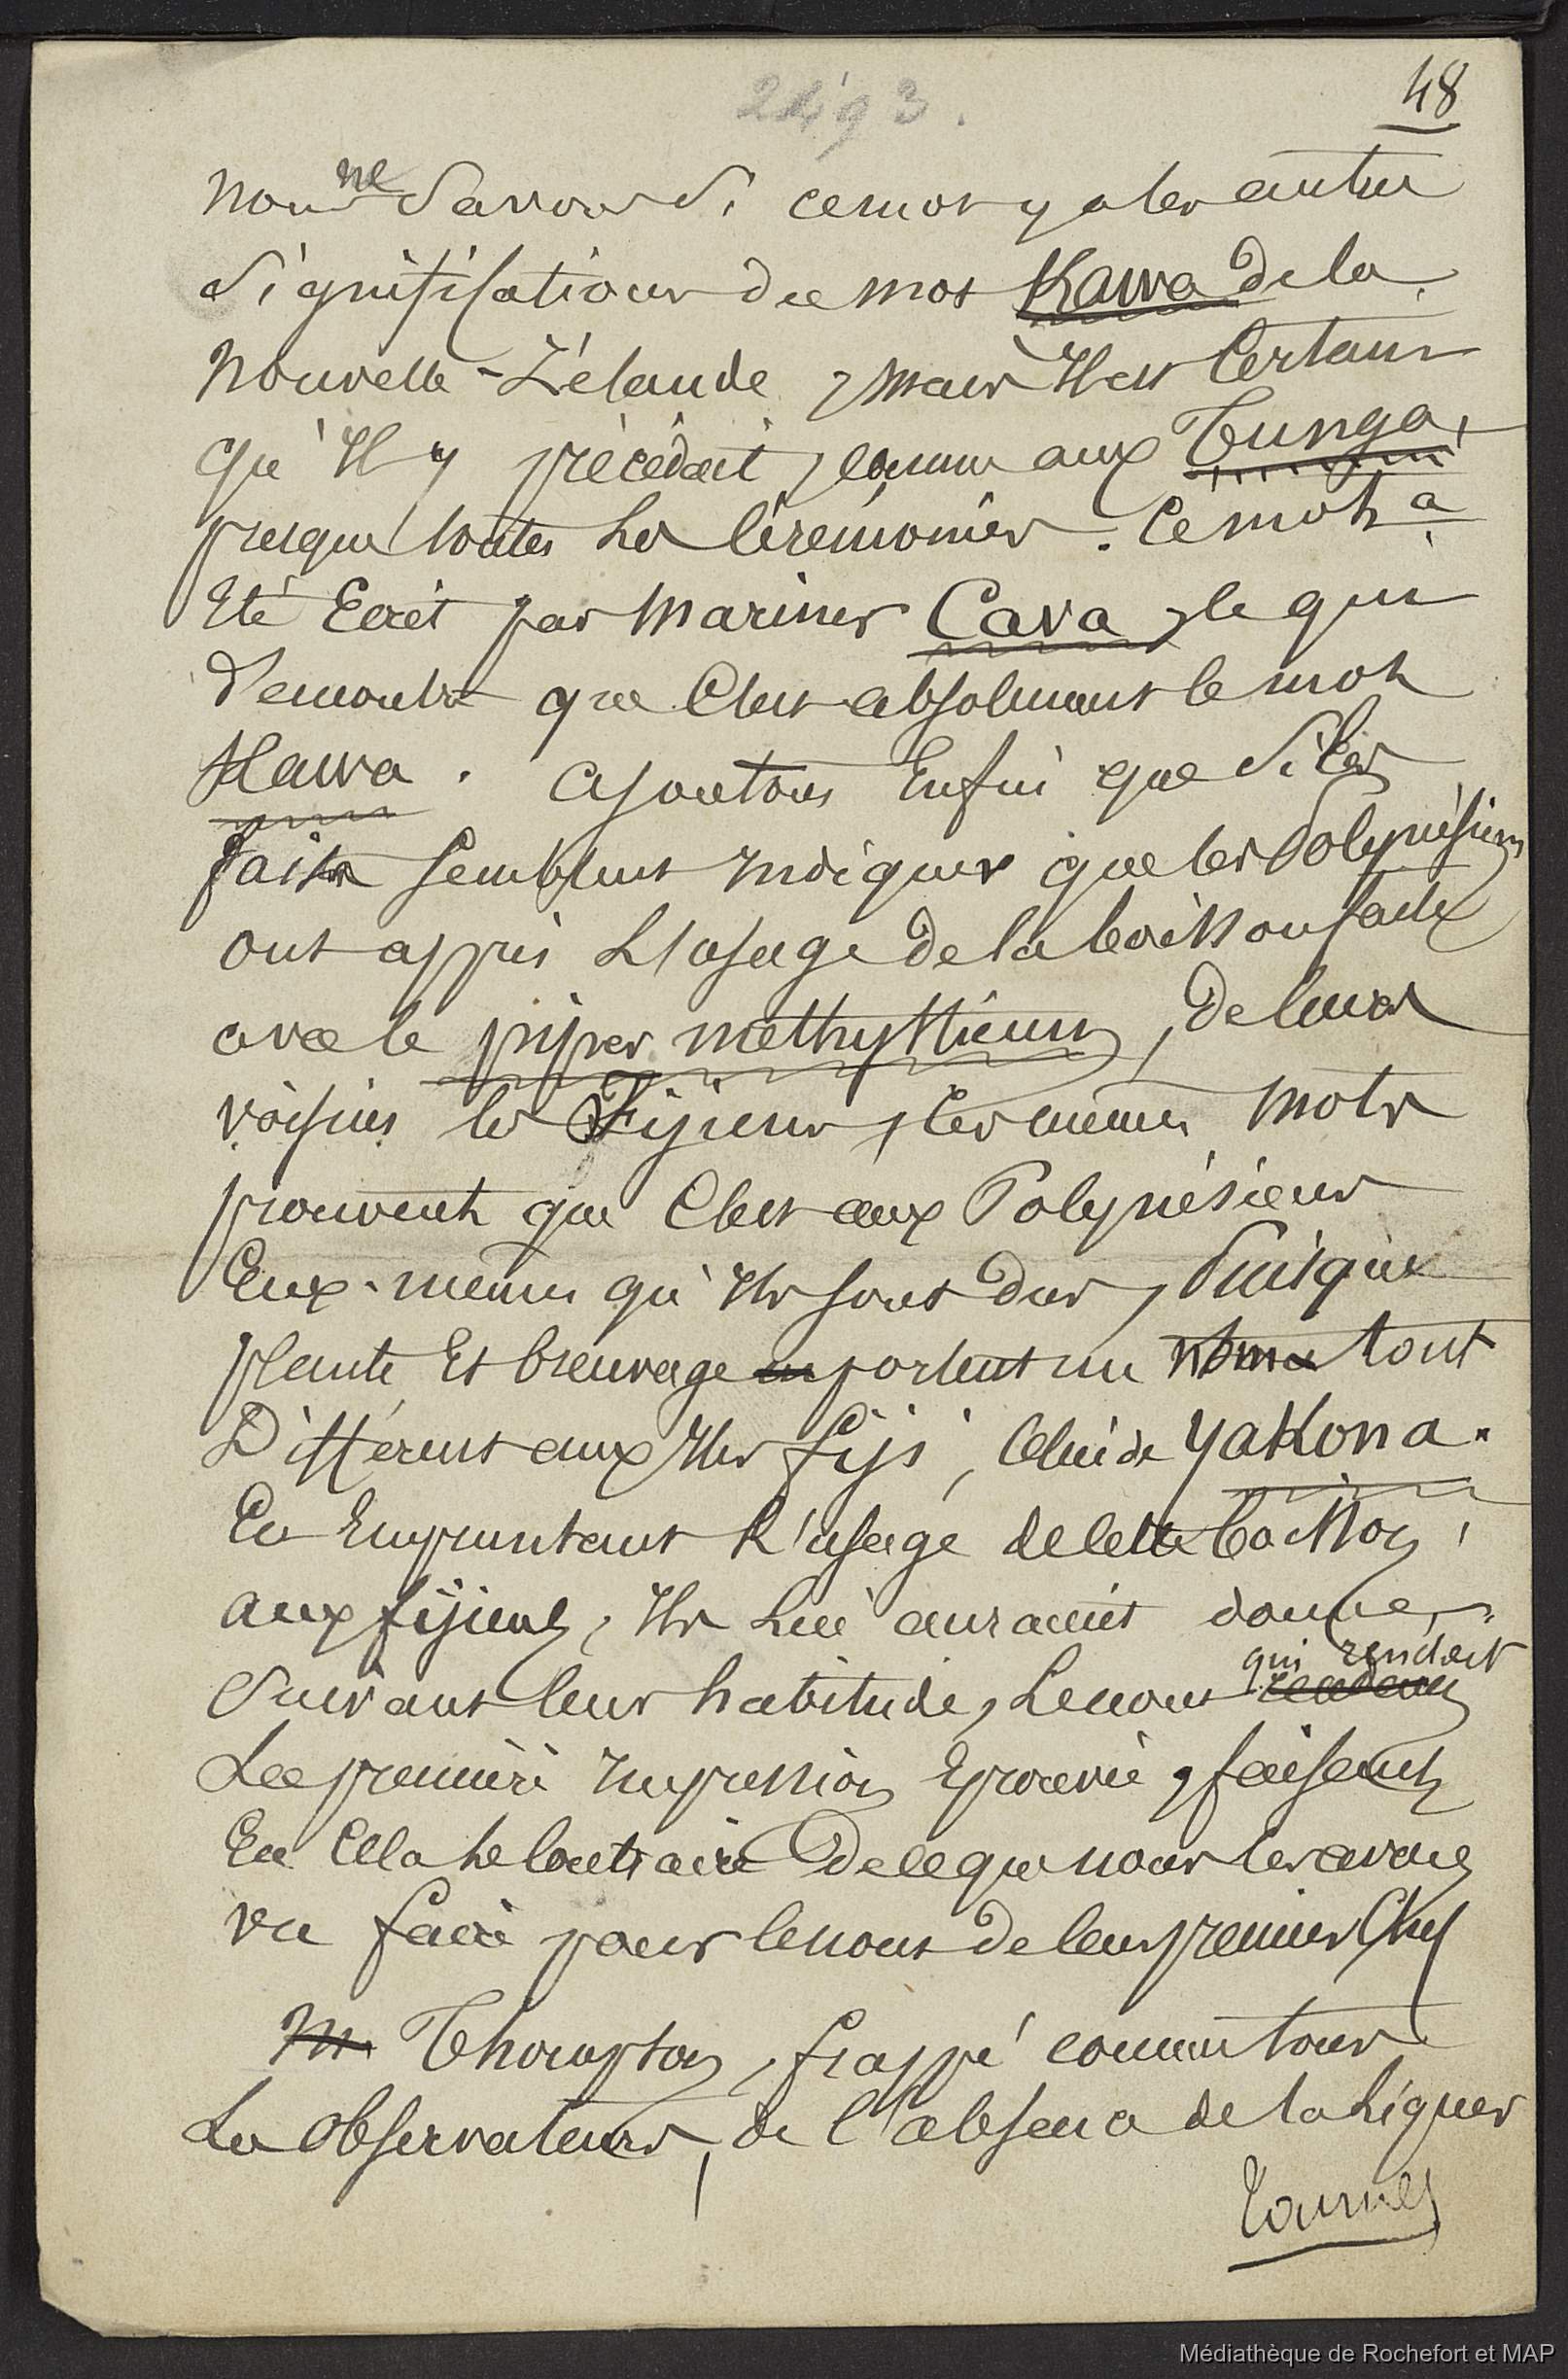 2493.
48
Nous ne savons si ce mot y a les autres
significations du mot Kawa de la
Nouvelle-Zélande, mais Il est Certain
qu'Il y précédait, comme aux Tunga,
presque toutes les Cérémonies. Ce mot a
Eté Ecrit par Mariner Cava, ce qui
démontre que C'est absolument le mot
Kawa. Ajoutons Enfin que si les
faits semblent Indiquer que les Polynésiens
ont appris L'usage de la boisson faite
avec le piper methysticum, de leurs
voisins les Fijiens, les mêmes mots
prouvent que C'est aux Polynésiens
Eux-mêmes qu'Ils sont dus, Puisque
plante Et breuvage portent un nom tout
Différent aux Iles fiji, Celui de Yakona.
En Empruntant L'usage de cette boisson
aux fijiens, Ils lui auraient donné,
suivant leur habitude, le nom qui rendait
La première Impression Eprouvée, faisant
En Cela le Contraire de ce que nous les avons
vu faire pour le nom de leur premier Chef
Mr Thompson, frappé comme tous
Les Observateurs, de l'absence de la liqueur
Tournez
Médiathèque de Rochefort et MAP